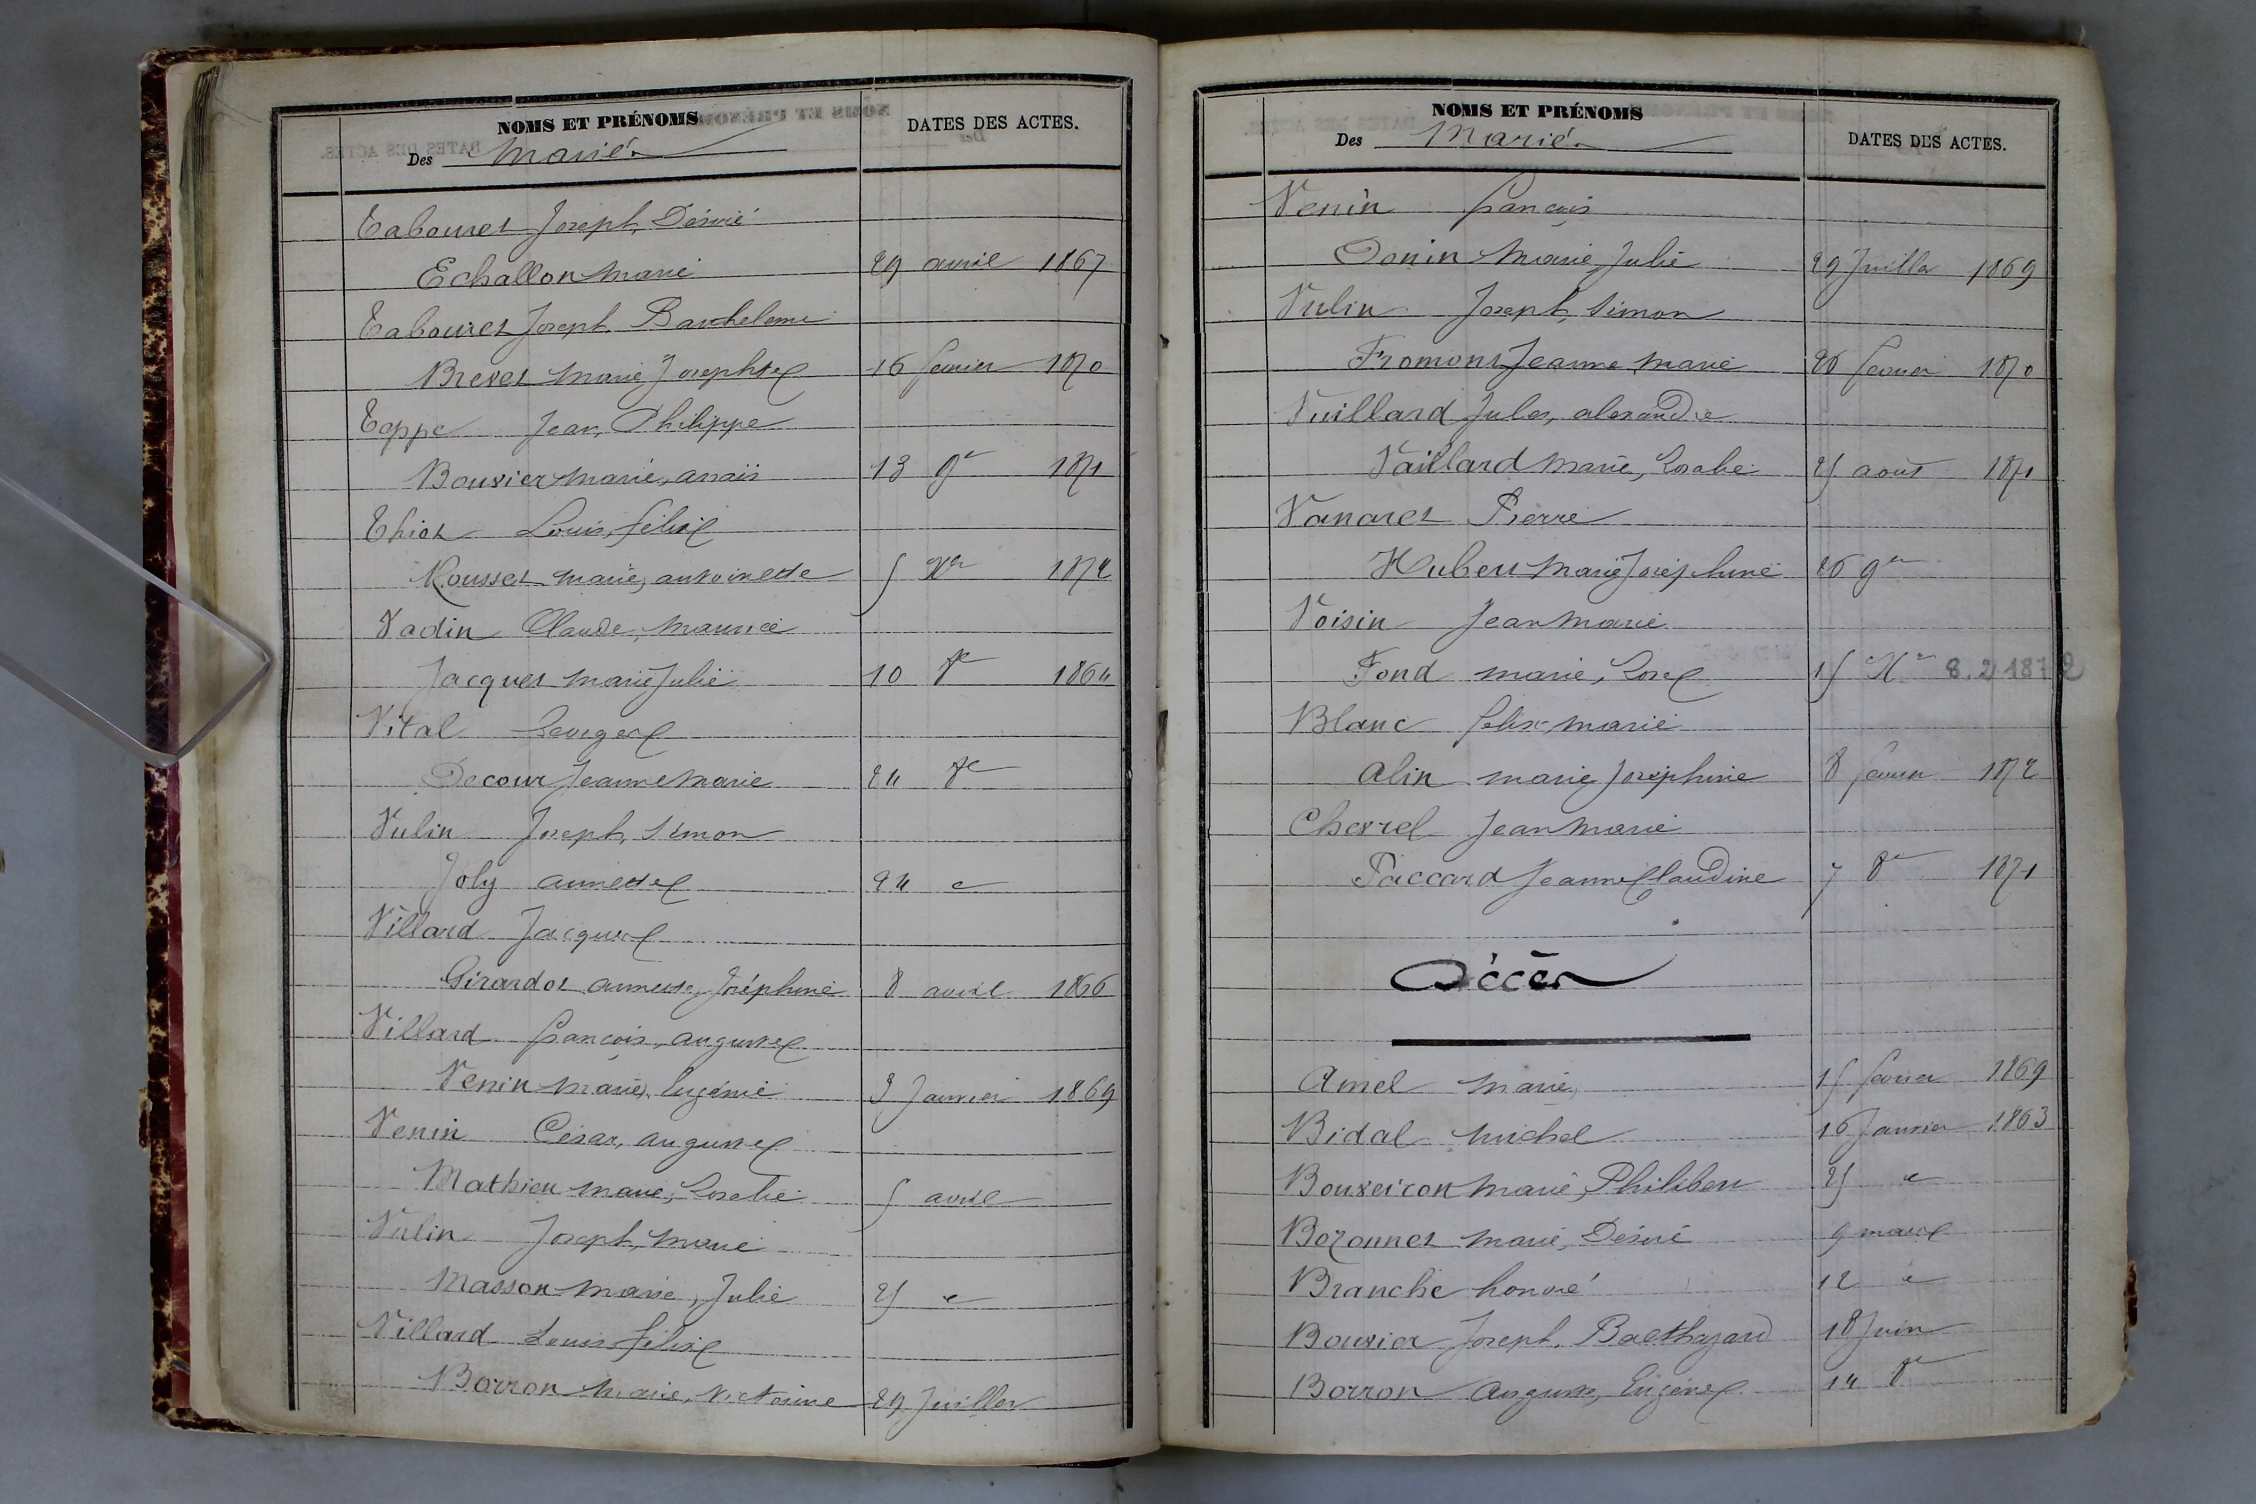 NOMS ET PRÉNOMS
Des Mariés
DATES DES ACTES.
Tabouret Joseph, Désiré
Echallon Marie 29 avril 1867
Tabouret Joseph Barthelemi
Brevet Marie Josephte 16 février 1870
Toppe Jean, Philippe
Bouvier Marie, anaïs 13 9re 1871
Thiot Louis, félix
Rousset Marie, antoinette 5 Xre 1872
Vadin Claude, Maurice
Jacquet Marie Julie 10 7e 1864
Vital
Decour Jeanne Marie 24 7e
Vulin Joseph, Simon
Joly annette 24 e
Villard Jacques
Girardot annette, Joséphine 8 avril 1866
Villard françois, auguste
Venin Marie, Eugénie 9 Janvier 1869
Venin César, auguste
Mathieu Marie, Rosalie 5 avril
Vulin Joseph, Marie
Masson Marie, Julie 25 e
Villard Louis félix
Borron Marie, victorine 29 Juillet
NOMS ET PRÉNOMS
Des Mariés
DATES DES ACTES.
Venin françois
Donin Marie Julie 29 Juillet 1869
Vulin Joseph, Simon
Fromont Jeanne Marie 26 février 1870
Vuillard Jules, alexandre
Vaillard Marie, Rosalie 25 août 1871
Vanaret Pierre
Hubert Marie Joséphine 26 9re
Voisin Jean Marie
Fond Marie, Rose 15 Xre 8.2.1872
Blanc félix Marie
Alin Marie Joséphine 8 février 1872
Chevrel Jean Marie
Paccard Jeanne Claudine 7 8re 1871
Décès
Amel Marie 15 février 1869
Bidal Michel 16 Janvier 1863
Bouveiron Marie, Philibert 25 e
Bozonnet Marie, Désiré 9 mars
Branche honoré 12 e
Bouvier Joseph, Balthazard 18 Juin
Borron Auguste, Eugène 14 8re